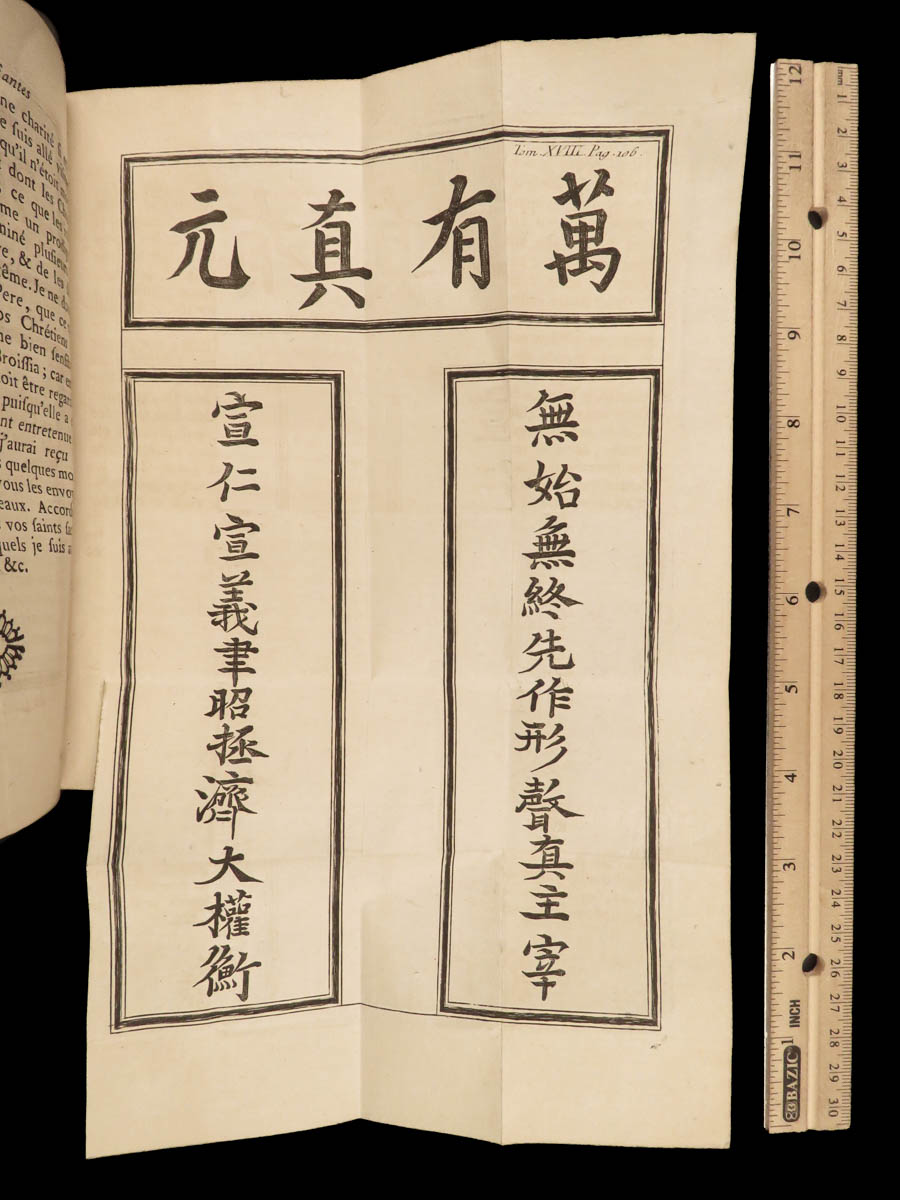 ne charité
ſuis allé
qu'il n'étoit
dont les
ce que les
un
plusieurs
& de les
Je ne
Pere, que ce
Chrétiens
bien
Broiſſia; car
être
puiſqu'elle a
entretenue
j'aurai reçu
quelques
vous les
vos ſaints
je ſuis
&c.
Tom. XVIII. Pag. 106.
萬有真元
無始無終先作形聲真主宰
宣仁宣義聿昭拯濟大權衡
12 11 10 9 8 7 6 5 4 3 2 1 INCH
BAZIC
mm 1 2 3 4 5 6 7 8 9 10 11 12 13 14 15 16 17 18 19 20 21 22 23 24 25 26 27 28 29 30